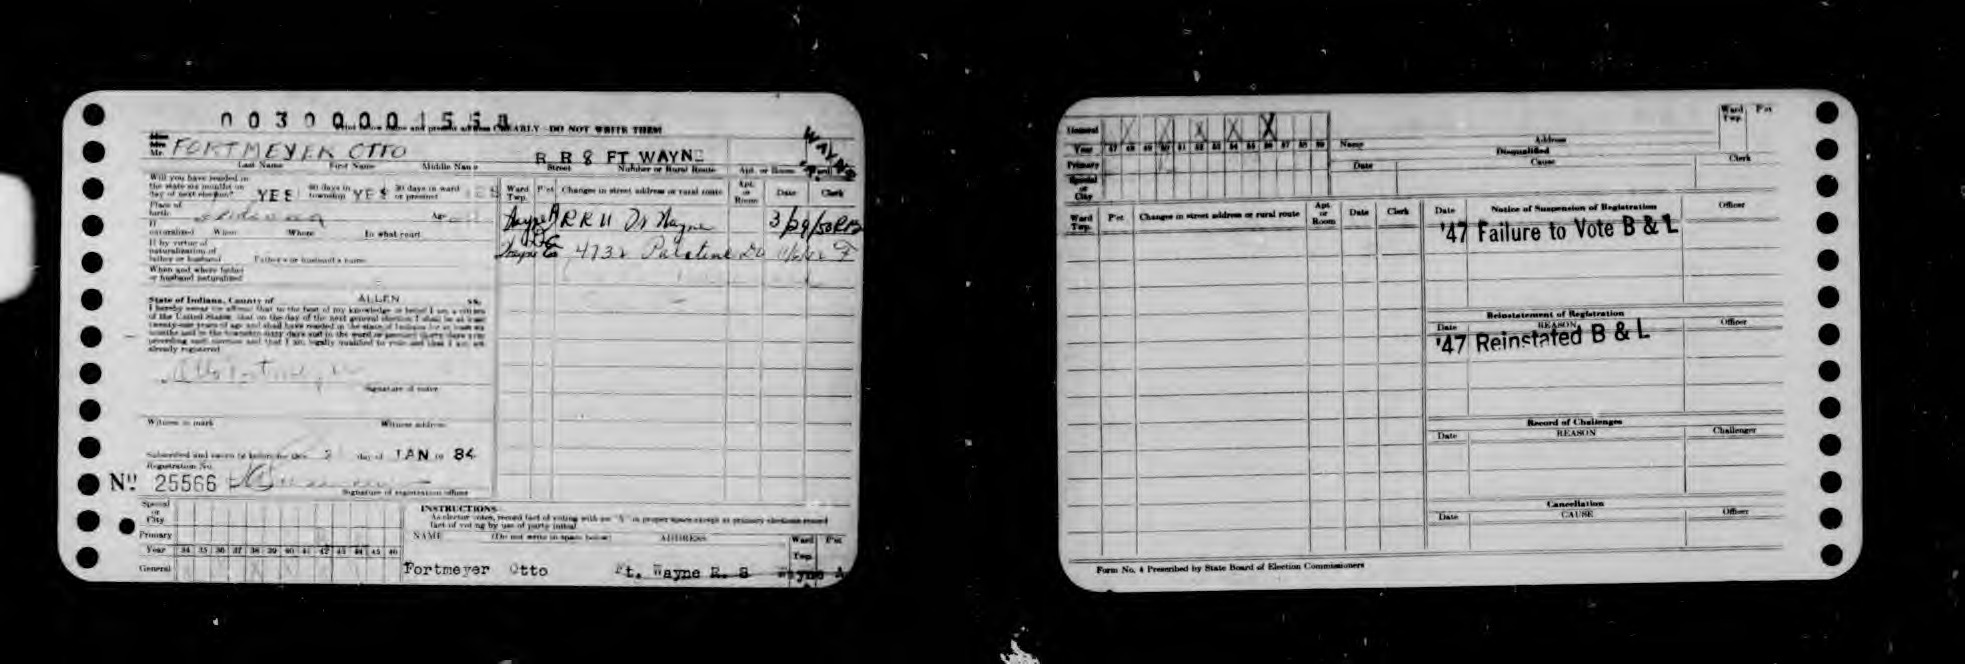 0030000155
Print below name and present address CLEARLY - DO NOT WRITE THEM
Mr. FORTMEYER OTTO R R 8 FT WAYNE WAYNE
Last Name First Name Middle Name Street Number or Rural Route Apt. or Room Ward
Will you have resided in the state six months on day of next election? YES 60 days in township YES 30 days in ward or precinct YES
Place of birth Indiana Age
If naturalized When Where In what court
If by virtue of naturalization of father or husband Father's or husband's name
When and where father or husband naturalized
State of Indiana, County of ALLEN ss.
I hereby swear (or affirm) that to the best of my knowledge or belief I am a citizen
of the United States; that on the day of the next general election I shall be at least
twenty-one years of age and shall have resided in the state of Indiana for at least six
months and in the township sixty days and in the ward or precinct thirty days
preceding such election and that I am legally qualified to vote and that I am not
already registered
Signature of voter
Witness to mark Witness address
Subscribed and sworn to before me this day of JAN 19 34
Registration No.
No 25566
Signature of registration officer
Ward Twp. P'ct Changes in street address or rural route Apt. or Room Date Clerk
Wayne A RR 11 Ft Wayne 3/29/50
Wayne 4732 Palatine Dr F
Special or City
Primary
Year 34 35 36 37 38 39 40 41 42 43 44 45 46
General
INSTRUCTIONS
As elector votes, record fact of voting with an "X" in proper space except at primary elections record
fact of voting by use of party initial
NAME (Do not write in space below) ADDRESS Ward Twp. P'ct
Fortmeyer Otto Ft. Wayne R. 8 Wayne A
General X X X X X
Year 47 48 49 50 51 52 53 54 55 56 57 58 59
Primary
Special or City
Name Address Ward Twp. P'ct
Disqualified
Date Cause Clerk
Ward Twp. P'ct Changes in street address or rural route Apt. or Room Date Clerk
Date Notice of Suspension of Registration Officer
'47 Failure to Vote B & L
Reinstatement of Registration
Date REASON Officer
'47 Reinstated B & L
Record of Challenges
Date REASON Challenger
Cancellation
Date CAUSE Officer
Form No. 4 Prescribed by State Board of Election Commissioners